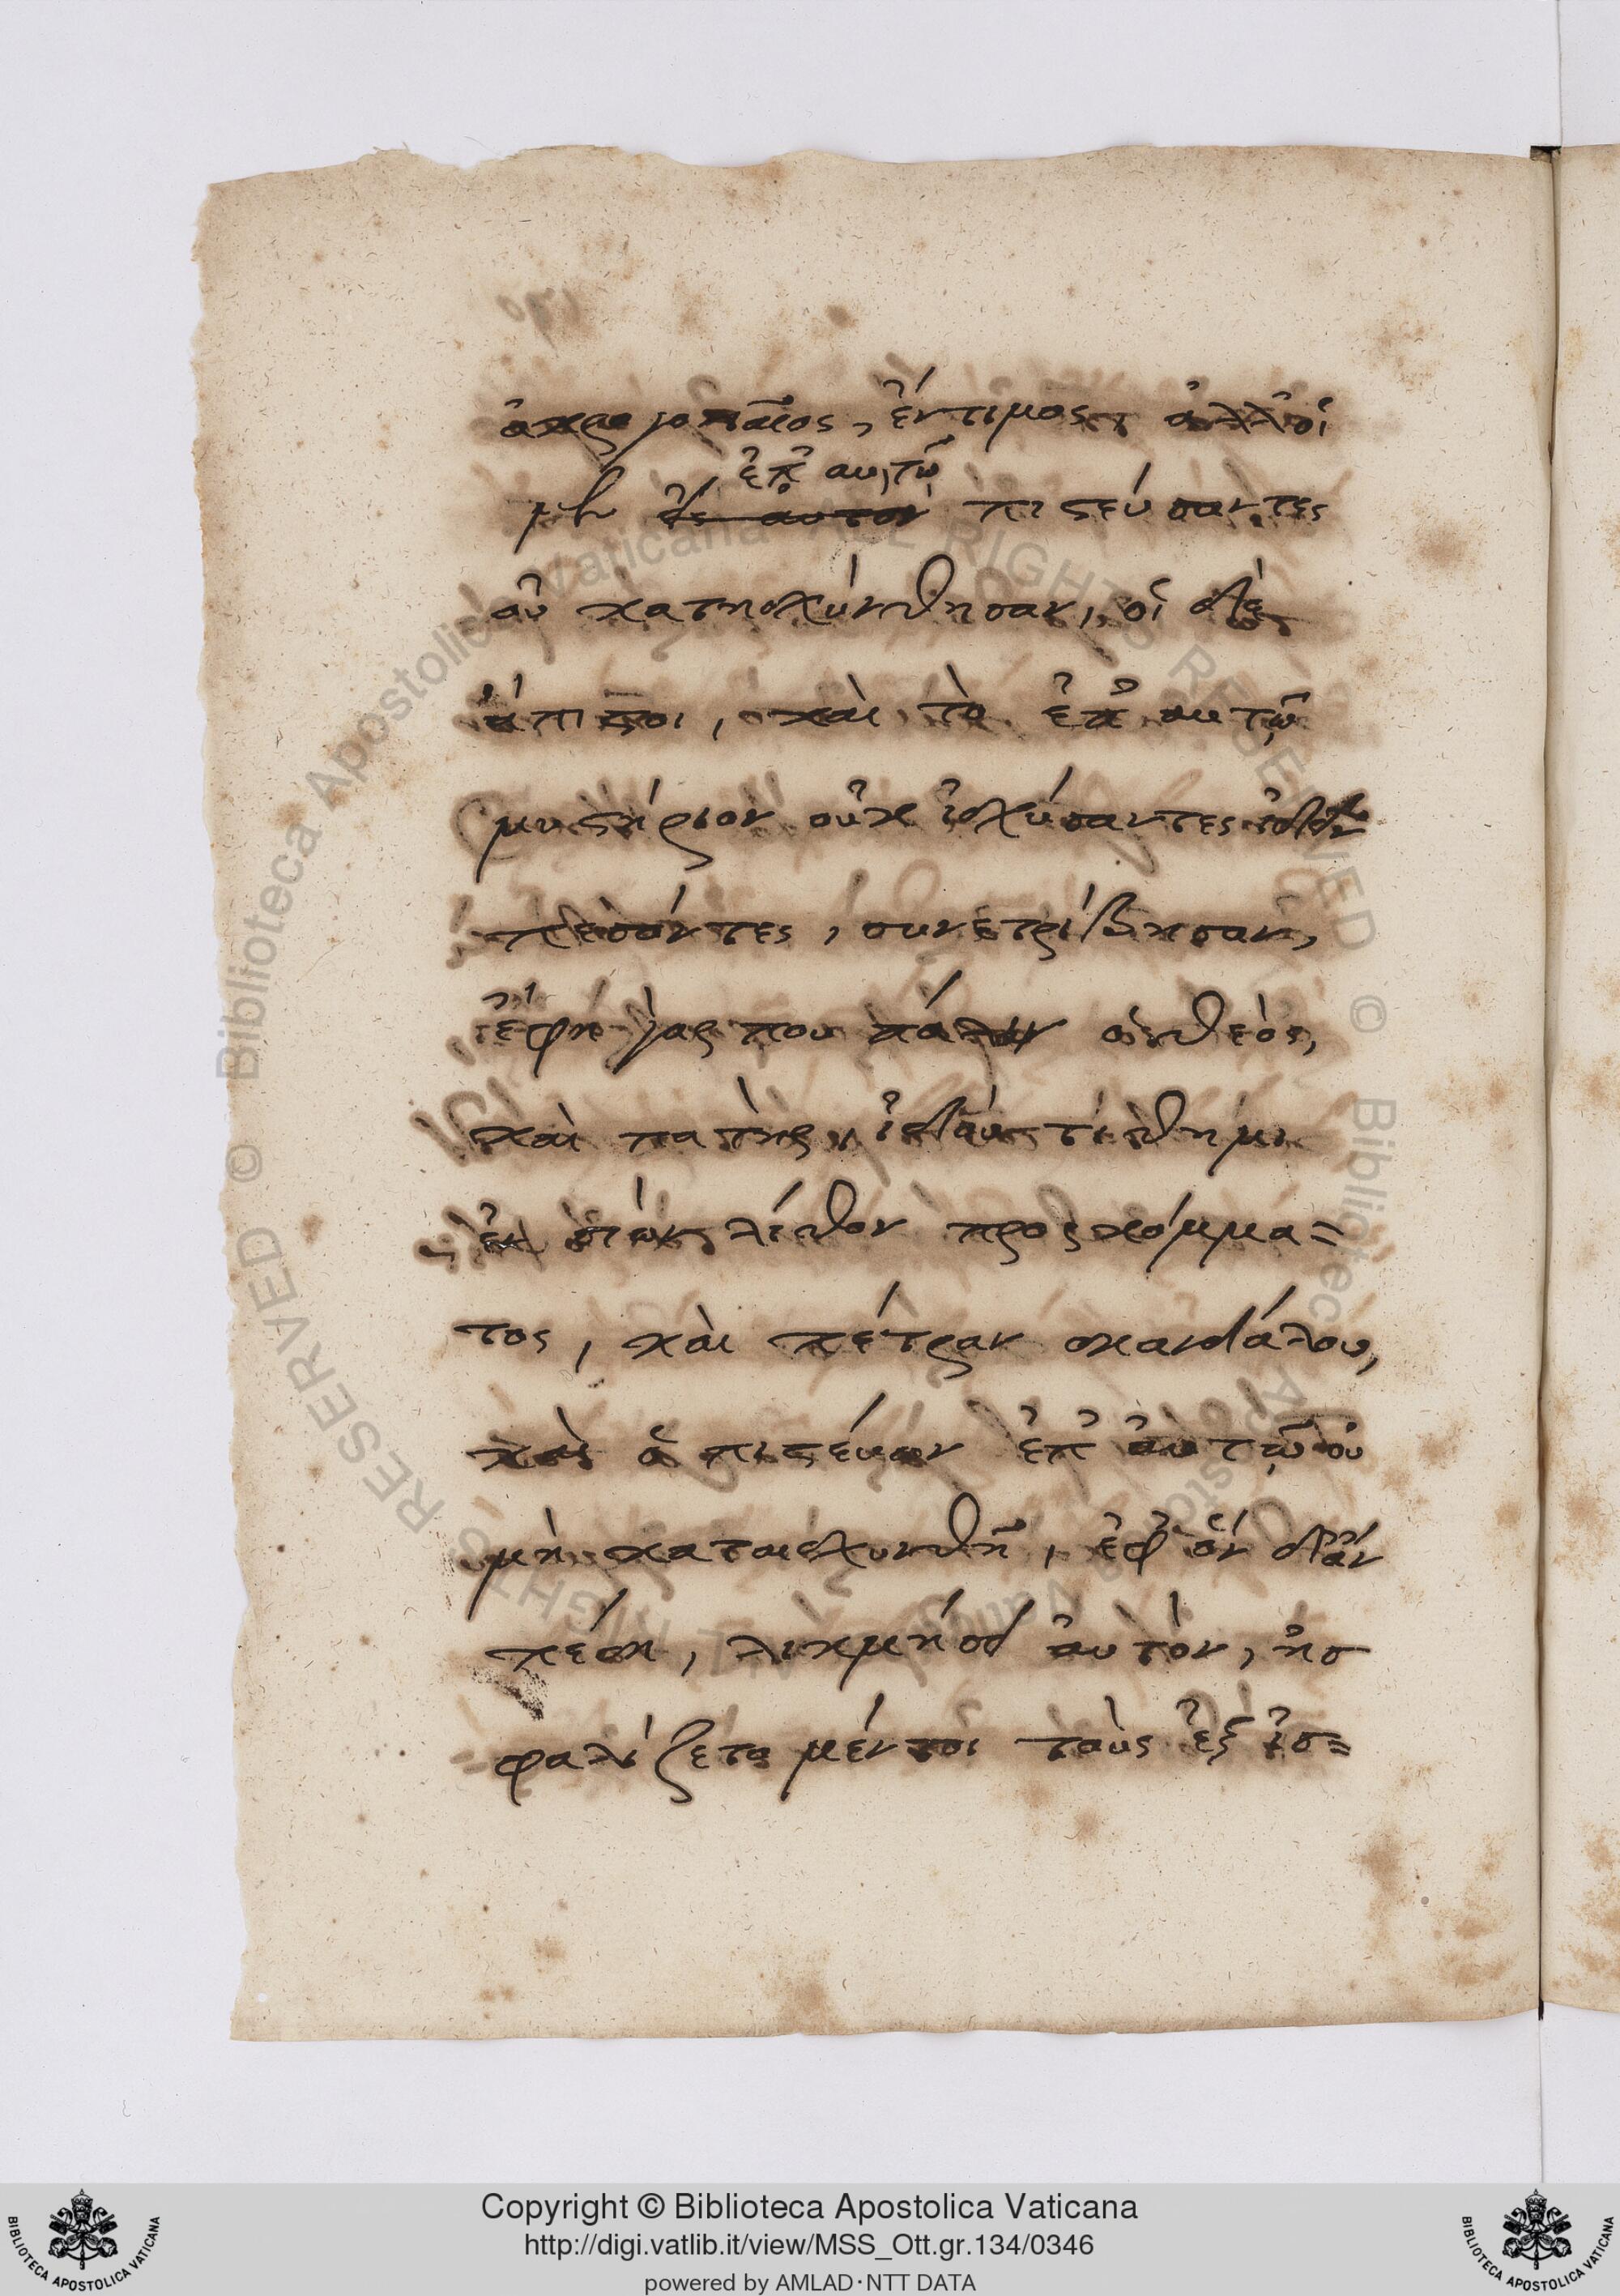 ἀκρογωνιαῖος, ἔντιμος, ἀλλ' οἱ
ἐπ' αυτῷ
μὲν εἰς αυτον πιστεύσαντες
οὐ κατησχύνθησαν, οἱ δὲ
ἄπιστοι, καὶ τὸ ἐπ' αυτῷ
μυστήριον οὐκ ἰσχύσαντες ἰδεῖν
πεσόντες, συνετρίβησαν,
ἔφη γάρ που πάλιν ὁ θεὸς,
καὶ πατὴρ, ἰδοὺ τίθημι
ἐν σιὼν λίθον προσκόμμα=
τος, καὶ πέτραν σκανδάλου,
καὶ ὁ πιστεύων ἐπ' αὐτῷ οὐ
μὴ καταισχυνθῆ, ἐφ' ὃν δ' ἂν
πέση, λικμήσει αὐτὸν, ἠσ
φαλίζετο μέντοι τοὺς ἐξ ἰσ=
Copyright © Biblioteca Apostolica Vaticana
http://digi.vatlib.it/view/MSS_Ott.gr.134/0346
powered by AMLAD·NTT DATA
BIBLIOTECA APOSTOLICA VATICANA
BIBLIOTECA APOSTOLICA VATICANA
© Biblioteca Apostolica Vaticana ALL RIGHTS RESERVED
© Biblioteca Apostolica Vaticana ALL RIGHTS RESERVED